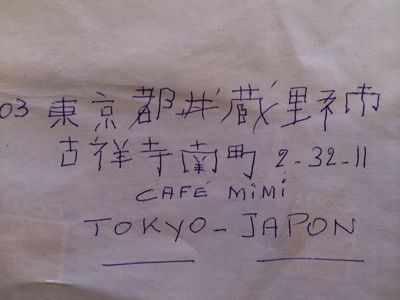 03 東京都武蔵野市
吉祥寺南町 2-32-11
CAFÉ MiMi
TOKYO - JAPON